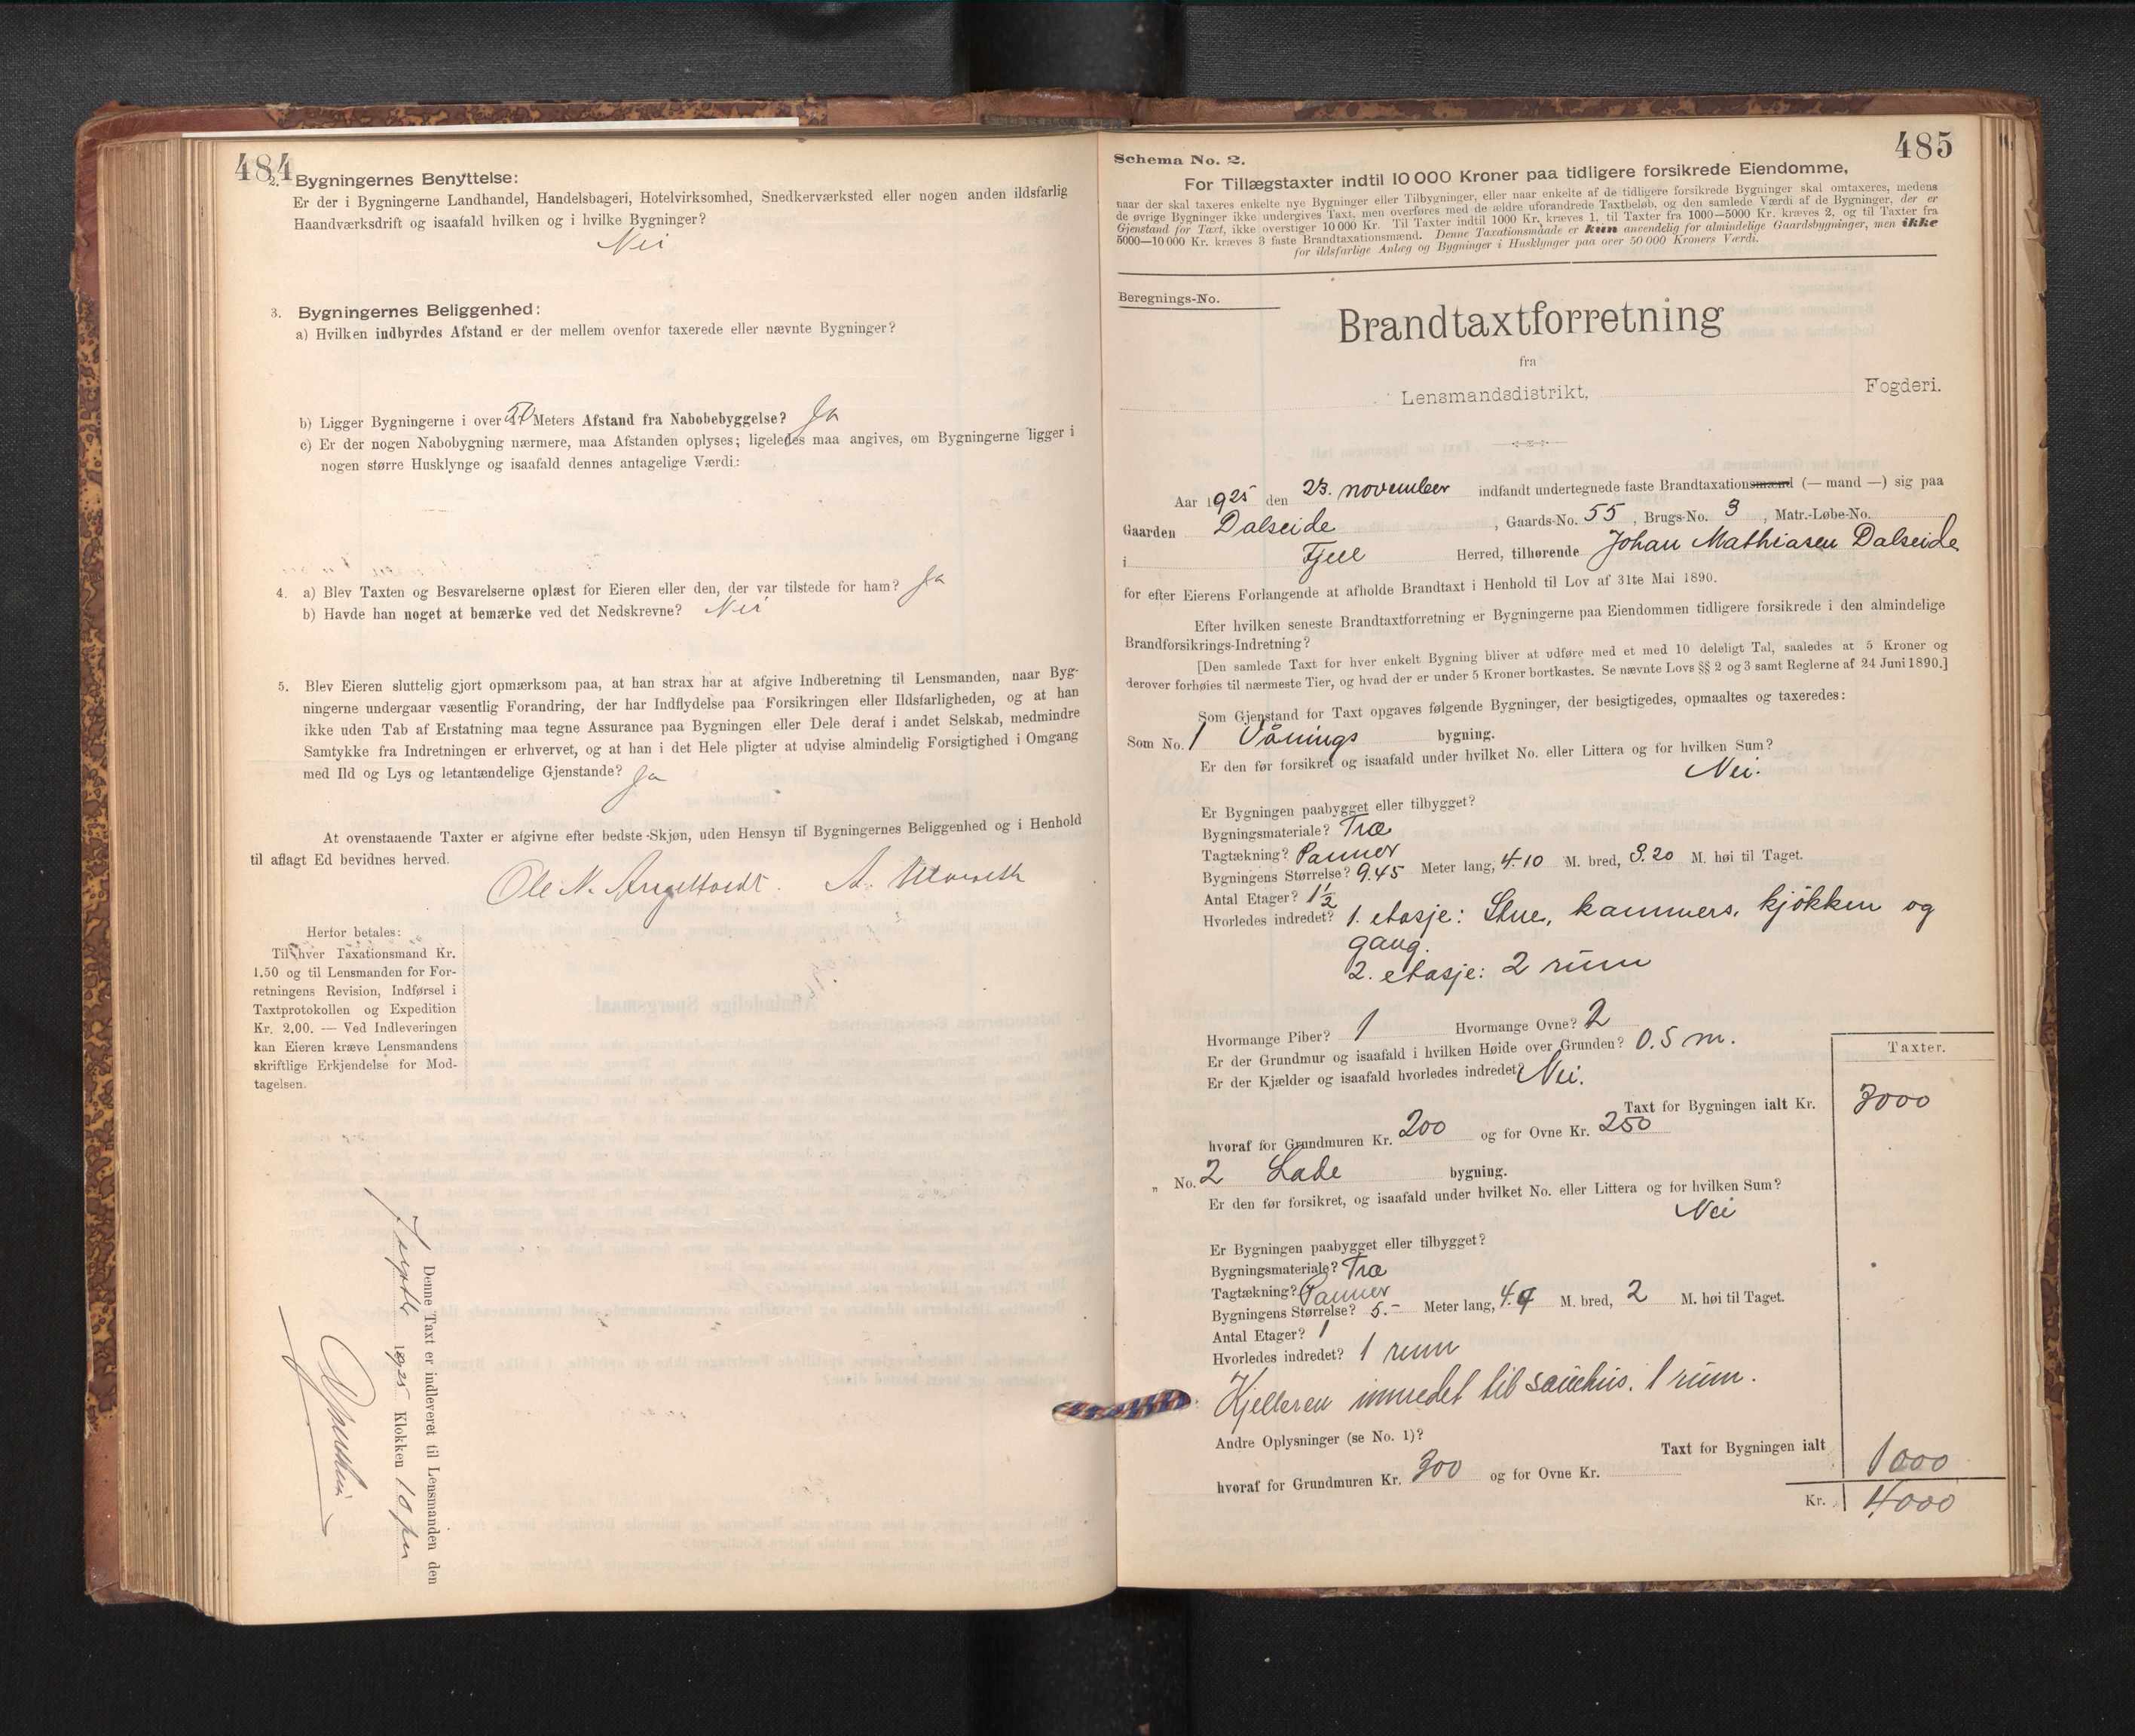 484
2. Bygningernes Benyttelse:
Er der i Bygningerne Landhandel, Handelsbageri, Hotelvirksomhed, Snedkerværksted eller nogen anden ildsfarlig
Haandværksdrift og isaafald hvilken og i hvilke Bygninger?
Nei
3. Bygningernes Beliggenhed:
a) Hvilken indbyrdes Afstand er der mellem ovenfor taxerede eller nævnte Bygninger?
b) Ligger Bygningerne i over 50 Meters Afstand fra Nabobebyggelse? Ja
c) Er der nogen Nabobygning nærmere, maa Afstanden oplyses; ligeledes maa angives, om Bygningerne ligger i
nogen større Husklynge og isaafald dennes antagelige Værdi:
4. a) Blev Taxten og Besvarelserne oplæst for Eieren eller den, der var tilstede for ham? Ja
b) Havde han noget at bemærke ved det Nedskrevne? Nei
5. Blev Eieren sluttelig gjort opmærksom paa, at han strax har at afgive Indberetning til Lensmanden, naar Byg-
ningerne undergaar væsentlig Forandring, der har Indflydelse paa Forsikringen eller Ildsfarligheden, og at han
ikke uden Tab af Erstatning maa tegne Assurance paa Bygningen eller Dele deraf i andet Selskab, medmindre
Samtykke fra Indretningen er erhvervet, og at han i det Hele pligter at udvise almindelig Forsigtighed i Omgang
med Ild og Lys og letantændelige Gjenstande? Ja
At ovenstaaende Taxter er afgivne efter bedste Skjøn, uden Hensyn til Bygningernes Beliggenhed og i Henhold
til aflagt Ed bevidnes herved.
Ole N. A.
Herfor betales:
Til hver Taxationsmand Kr.
1.50 og til Lensmanden for For-
retningens Revision, Indførsel i
Taxtprotokollen og Expedition
Kr. 2.00. — Ved Indleveringen
kan Eieren kræve Lensmandens
skriftlige Erkjendelse for Mod-
tagelsen.
Denne Taxt er indleveret til Lensmanden den
1925 Klokken 10
485
Schema No. 2.
For Tillægstaxter indtil 10 000 Kroner paa tidligere forsikrede Eiendomme,
naar der skal taxeres enkelte nye Bygninger eller Tilbygninger, eller naar enkelte af de tidligere forsikrede Bygninger skal omtaxeres, medens
de øvrige Bygninger ikke undergives Taxt, men overføres med de ældre uforandrede Taxtbeløb, og den samlede Værdi af de Bygninger, der er
Gjenstand for Taxt, ikke overstiger 10 000 Kr. Til Taxter indtil 1000 Kr. kræves 1, til Taxter fra 1000—5000 Kr. kræves 2, og til Taxter fra
5000—10 000 Kr. kræves 3 faste Brandtaxationsmænd. Denne Taxationsmaade er kun anvendelig for almindelige Gaardsbygninger, men ikke
for ildsfarlige Anlæg og Bygninger i Husklynger paa over 50 000 Kroners Værdi.
Beregnings-No.
Brandtaxtforretning
fra
Lensmandsdistrikt, Fogderi.
Aar 1925 den 23. november indfandt undertegnede faste Brandtaxationsmænd (— mand —) sig paa
Gaarden Dalseide, Gaards-No. 55, Brugs-No. 3, Matr.-Løbe-No.
i Fjell Herred, tilhørende Johan Mathiasen Dalseide
for efter Eierens Forlangende at afholde Brandtaxt i Henhold til Lov af 31te Mai 1890.
Efter hvilken seneste Brandtaxtforretning er Bygningerne paa Eiendommen tidligere forsikrede i den almindelige
Brandforsikrings-Indretning?
[Den samlede Taxt for hver enkelt Bygning bliver at udføre med et med 10 deleligt Tal, saaledes at 5 Kroner og
derover forhøies til nærmeste Tier, og hvad der er under 5 Kroner bortkastes. Se nævnte Lovs §§ 2 og 3 samt Reglerne af 24 Juni 1890.]
Som Gjenstand for Taxt opgaves følgende Bygninger, der besigtigedes, opmaaltes og taxeredes:
Som No. 1 Vånings bygning.
Er den før forsikret og isaafald under hvilket No. eller Littera og for hvilken Sum?
Nei.
Er Bygningen paabygget eller tilbygget?
Bygningsmateriale? Træ
Tagtækning? Panner
Bygningens Størrelse? 9.45 Meter lang, 4.10 M. bred, 3.20 M. høi til Taget.
Antal Etager? 1½
Hvorledes indredet? 1. etasje: Stue, kammers, kjökken og
gang.
2. etasje: 2 rum
Hvormange Piber? 1 Hvormange Ovne? 2
Er der Grundmur og isaafald i hvilken Høide over Grunden? 0.5 m.
Er der Kjælder og isaafald hvorledes indredet? Nei.
Taxter.
Taxt for Bygningen ialt Kr. 3000
hvoraf for Grundmuren Kr. 200 og for Ovne Kr. 250
„ No. 2 Lade bygning.
Er den før forsikret, og isaafald under hvilket No. eller Littera og for hvilken Sum?
Nei
Er Bygningen paabygget eller tilbygget?
Bygningsmateriale? Træ
Tagtækning? Panner
Bygningens Størrelse? 5.– Meter lang, M. bred, 2 M. høi til Taget.
Antal Etager? 1
Hvorledes indredet? 1 rum
Kjelleren innredet til sauehus. 1 rum.
Andre Oplysninger (se No. 1)?
Taxt for Bygningen ialt 1000
hvoraf for Grundmuren Kr. 300 og for Ovne Kr.
Kr. 4000